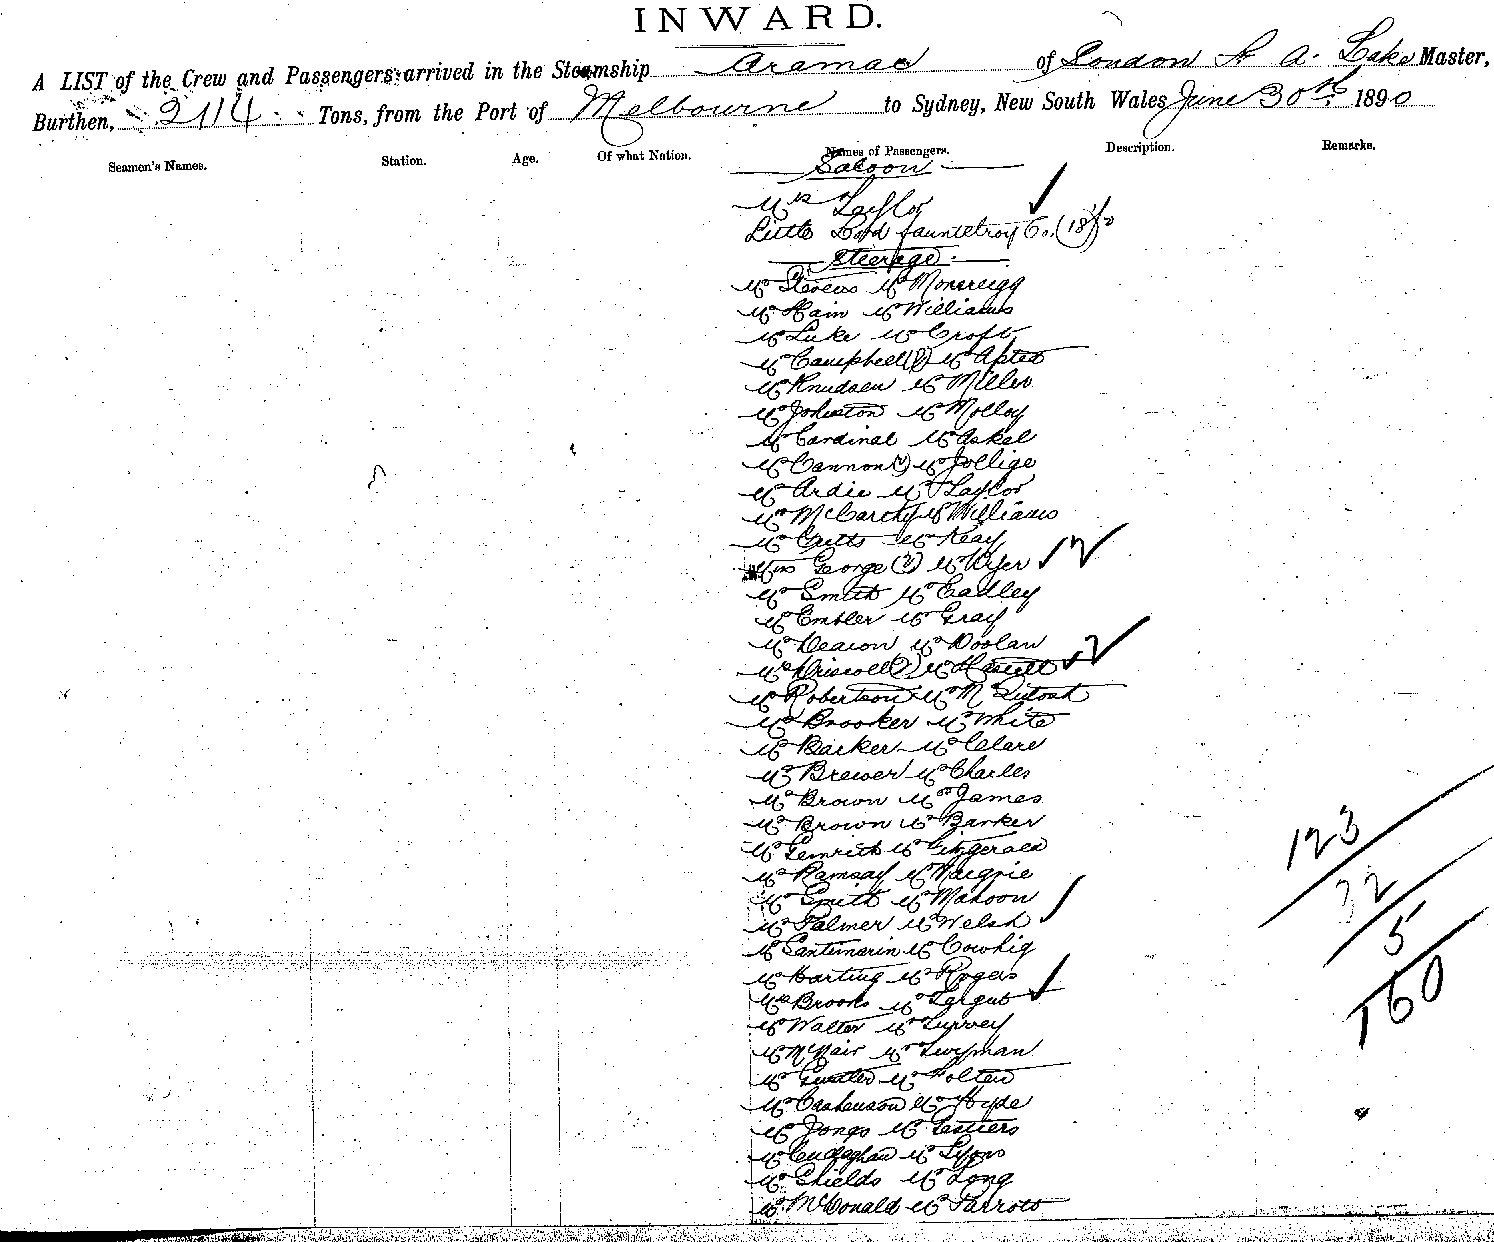 INWARD.
A LIST of the Crew and Passengers arrived in the Steamship Aramac of London A. Lake Master,
Burthen, 2114 Tons, from the Port of Melbourne to Sydney, New South Wales June 30th 1890
Seamen's Names. Station. Age. Of what Nation. Names of Passengers. Description. Remarks.
Saloon
Mrs Taylor
Little Lord Fauntelroy Co. (18)
Steerage
Mr Stevens Mr
Mr Hain Mr Williams
Mr Luke Mr Croft
Mr Campbell Mr
Mr Knudsen Mr Miller
Mr Johnston Mr Molloy
Mr Cardinal Mr Askel
Mr Cannon Mr Jollige
Mr Ardie Mr Taylor
Mr McCarthy Mr Williams
Mr Mr Keay
George Mr
Mr Smith Mr Eadley
Mr Embler Mr Gray
Mr Deacon Mr Doolan
Driscoll Mr
Mr Robertson Mr McIntosh
Mr Brooker Mr White
Mr Barker Mr Clare
Mr Brewer Mr Charles
Mr Brown Mr James
Mr Brown Mr Barker
Mr Mr Fitzgerald
Mr Ramsay Mr
Mr Smith Mr Mahoon
Mr Palmer Mr Welsh
Mr Santimarin Mr Cowhig
Mr Harting Mr Rogers
Mrs Brooks Mr
Mr Walter Mr Turvey
Mr McNair Mr Twyman
Mr Mr Folten
Mr Mr Hyde
Mr Jongs Mr
Mr Mr Lyons
Mr Shields Mr Long
Mr McDonald Mr Parrott
123
32
5
160